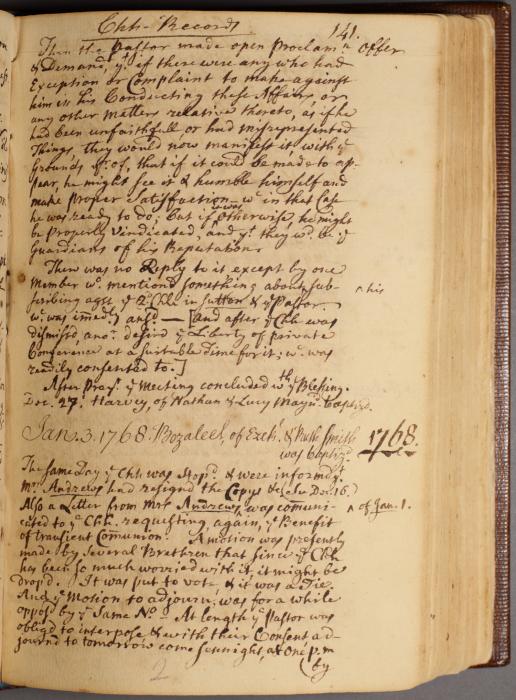 Chh Records
141.
Then the Pastor made open Proclamn offer
& Demand, yt if there were any who had
Exception or Complaint to make against
him in his Conducting these Affairs or
any other matters relative thereto, as if he
had been unfaithfull or had misrepresented
Things, they would now manifest it with ye
Grounds yrof, that if it could be made to ap-
pear, he might see it & humble himself and
make proper Satisfaction wc in that Case
he was ready to do; but if otherwise, he might
be properly vindicated, and yt they wd be ye
Guardians of his Reputation.
There was no Reply to it except by one
Member wo mentiond something about sub- ^ his
scribing agst ye 2d Chh in Sutton & ye Pastor.
wc was immedy ansd — [and after ye Chh was
dismissd, anor desird ye Liberty of private
Conference at a suitable time for it; wc was
readily consented to.]
After Prayr ye Meeting concluded wth ye Blessing.
Dec. 27. Harvey, of Nathan & Lucy Mayd baptizd.
Jan. 3. 1768. Bozaleel, of Ezek. & Ruth Smith 1768.
was baptizd.
The same Day ye Chh was Stopd & were informd yt
Mr Andrews had resignd the Copys &c (see Dec. 16.)
Also a Letter from Mrs Andrews was comuni- ^ of Jan. 1.
cated to ye Chh. requesting, again, ye Benefit
of transient Comunion. A motion was presently
made by several Brethren that since ye Chh
has been so much worried with it, it might be
dropd. It was put to vote & it was a Tie.
And ye Motion to adjourn, was for a while
opposd by ye Same No. At length ye Pastor was
obligd to interpose & with their Consent ad-
journd to tomorrow come sennight, at One p.m
by
2